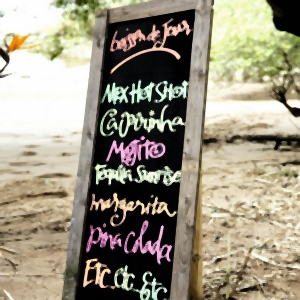 Boisson du Jour
Mex Hot Shot
Caïpirinha
Mojito
Tequila Sunrise
Margarita
Pina Colada
Etc. Etc. Etc.